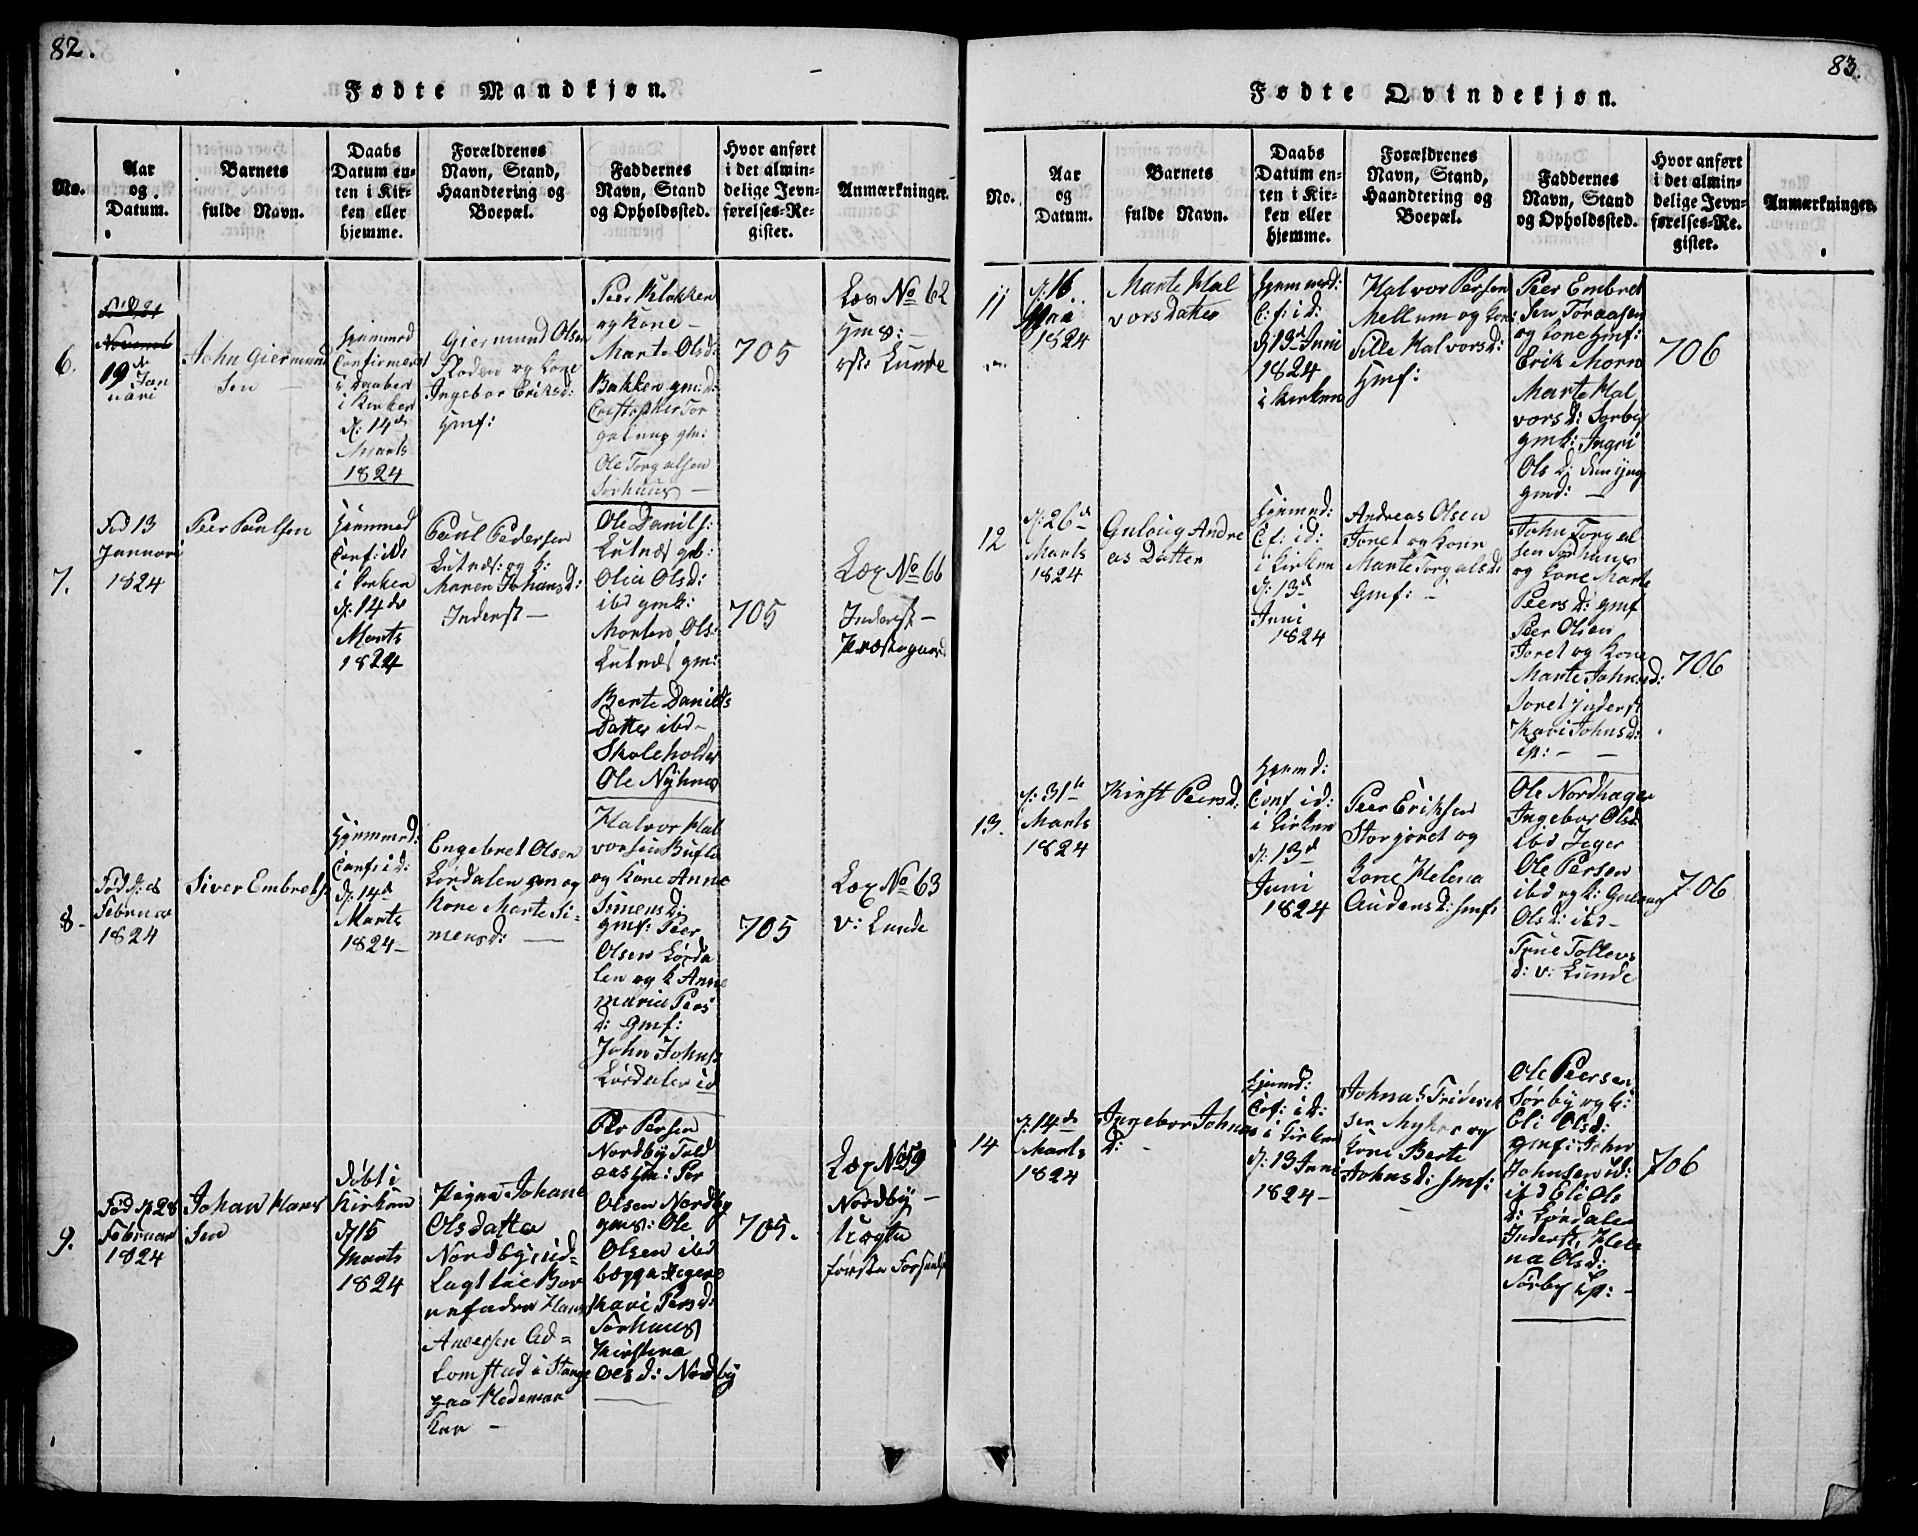 82.
Fødte Mandkjøn.
No.
Aar
og
Datum.
Barnets
fulde Navn.
Daabs
Datum en-
ten i Kir-
ken eller
hjemme.
Forældrenes
Navn, Stand,
Haandtering og
Boepæl.
Faddernes
Navn, Stand
og Opholdssted.
Hvor anført
i det almin-
delige Jevn-
førelses-Re-
gister.
Anmærkninger.
6.
19de Jan
uari
John Giermund
Sen
Hjemmed
Confirmeret
i Daaben
i Kirken
d: 14de
Marts
1824
Giermund Olsen
Floden og Kone
Ingebor Eriksd:
Hmf:
Peer Klokken
og Kone -
Marte Olsd:
Bakken gmd:
Cristopher Tor
gmf:
Ole Torgalsen
Sørhuus -
705
Læx No 62
Hms: -
Lunde
7.
Fød 13
Januari
1824
Peer Paulsen
Hiemmed
Conf: i ds
i Kirken
d: 14de
Marts
1824
Paul Pedersen
Lutnæs: og k:
Maren Johansd:
Inderst -
Ole Danils:
Lutnæs gb:
Olia Olsd:
ibd gmk:
Morten Ols:
Lutnæs gm:
Berte Danields
Datter ibd -
Skoleholder
Ole Nyhuus
705
Læx No 66
Inderst -
Præstegaard
8.
Fød d:
Februar
1824
Siver Embrets:
Hjemmed:
Conf: i d:
d: 14de
Marts
1824 -
Engebret Olsen
Lørdalen gm og
Kone Marte Si-
mensd: -
Halvor Hal
vorsen Bufla
og Kone Anne
Simensd:
gmf: Peer
Olsen Lørda
len og k Anne
maria Peers
d: Gmf:
John Johns:
Lørdalen id
705
Læx No 63
v: Lunde
9.
Fød d: 28
Februar
1824
Johan Hans
Sen
Døbt i
Kirken
d 15
Marts
1824
Pigen Johane
Olsdatter
Nordby ud-
Lagt til Bar
nefader Hans
Andersen Ad-
Lomstad i Stange
paa Hedemar
ken -
Per Persen
Nordby
gm: Per
Olsen Nordby
gms: Ole
Olsen ibd
begge
Kari Persd:
Sørhuus
Kirstina
Oesd: Nordby
705.
Læx No 59
Nordby -
Uægte
første Forseelse
83.
Fødte Qvindekjøn.
No.
Aar
og
Datum.
Barnets
fulde Navn.
Daabs
Datum en-
ten i Kir-
ken eller
hjemme.
Forældrenes
Navn, Stand,
Haandtering og
Boepæl.
Faddernes
Navn, Stand
og Opholdssted.
Hvor anført
i det almin-
delige Jevn-
førelses-Re-
gister.
Anmærkninger.
11
d: 16
1824
Marte Hal
vorsdatter
Hjemmed:
C: f: i d:
d 12 Juni
1824
i Kirken
Halvor Persen
Mellum og Kone:
Sille Halvorsd:
Hmf:
Peer Embret
Sen Toraasen
og Kone Gmf:
Erik Morn
Marte Hal
vorsd: Sørby
gmk: Ingri
Ols d:
gmd: -
706
12
d: 26de
Marts
1824
Guloug Andre
as Datter
Hjemd:
Cf: id:
i Kirken
d: 13d
Juni
1824
Andreas Olsen
Joret og Kone
Marte Torgalsd:
Gmf: -
John Torgal
sen Sørhuus
og Kone Marte
Peersd: gmf
Peer Olsen
Joret og Kone
Marte Johnsd:
Joret Inderst
Kari Johnsd:
ip: -
706
13.
d: 31te
Marts
1824
Kirst Peersd:
Hjemd:
Conf id:
i Kirken
d: 13d
Juni
1824
Peer Eriksen
Storjoret og
Kone Helena
Audensd: Hmf:
Ole Nordhagen
Ingebor Olsd
ibd Jeger
Ole Persen
ibd og k: Guloug
Olsd: ibd -
True Tollevs
d: v: Lunde
706
14
d: 14de
Marts
1824
Ingebor Johnas
d: -
Hjemd:
Cof: i d:
i Kirken
d: 13 Juni
1824 -
Johnas Friderek
sen Myhre og
Kone Berte
Johnsd: Hmf:
Ole Peersen
Sørby og k:
Eli Olsd:
Gmf: John
Johnsen id:
Eli Ols
d: Lørdalen
Inderst, Hele
na Olsd:
Sørby ip: -
706